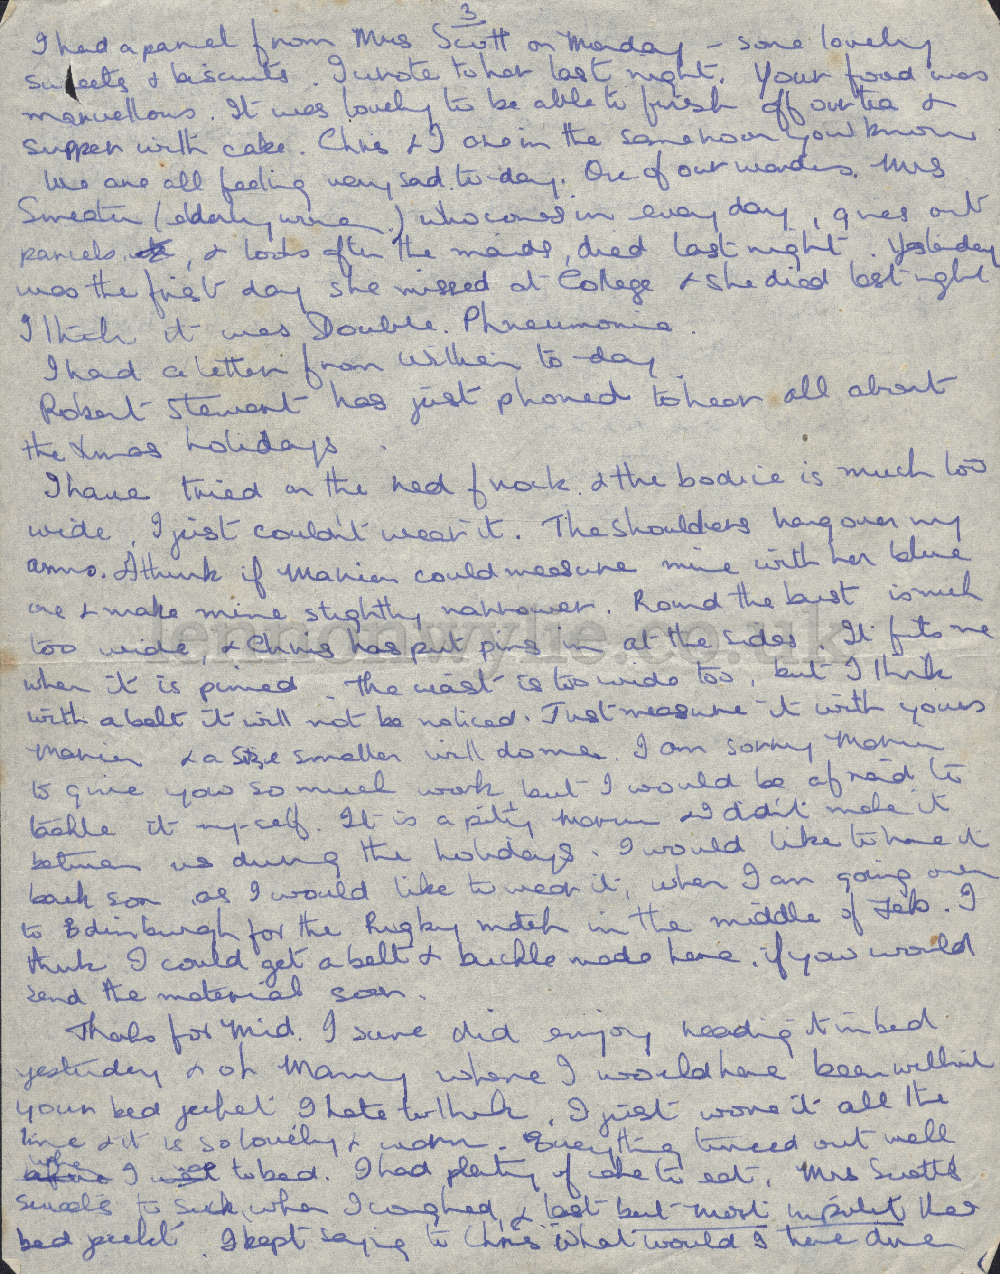 3
I had a parcel from Mrs Scott on Monday – some lovely
sweets & biscuits. I wrote to her last night. Your food was
marvellous. It was lovely to be able to finish off our tea &
supper with cake. Chris & I are in the same room you know
We are all feeling very sad to-day. One of our wardens, Mrs
(elderly) who comes in every day, gives out
parcels, & looks after the maids, died last night. Yesterday
was the first day she missed at College & she died last night
I think it was Double Phneumonia.
I had a letter from to-day.
Robert Stewart has just phoned to hear all about
the Xmas holidays.
I have tried on the red frock & the bodice is much too
wide, I just couldn't wear it. The shoulders hang over my
arms. I think if Marien could measure mine with her blue
one & make mine slightly narrower. Round the bust is much
too wide, & Chris has put pins in at the sides. It fits me
when it is pinned. The waist is too wide too, but I think
with a belt it will not be noticed. Just measure it with yours
Marien & a size smaller will do me. I am sorry Marien
to give you so much work but I would be afraid to
tackle it my-self. It is a pity Marien we didn't make it
between us during the holidays. I would like to have it
back soon as I would like to wear it, when I am going over
to Edinburgh for the Rugby match in the middle of Feb. I
think I could get a belt & buckle made here, if you would
send the material soon.
Thanks for Mid. I sure did enjoy reading it in bed
yesterday & oh Mammy where I would have been without
your bed jacket I hate to think. I just wore it all the
time & it is so lovely & warm. Everything turned out well
when I was to bed. I had plenty of cake to eat, Mrs Scott's
sweets to suck, when I coughed, & last but most important that
bed jacket. I kept saying to Chris What would I have done
lennonwylie.co.uk